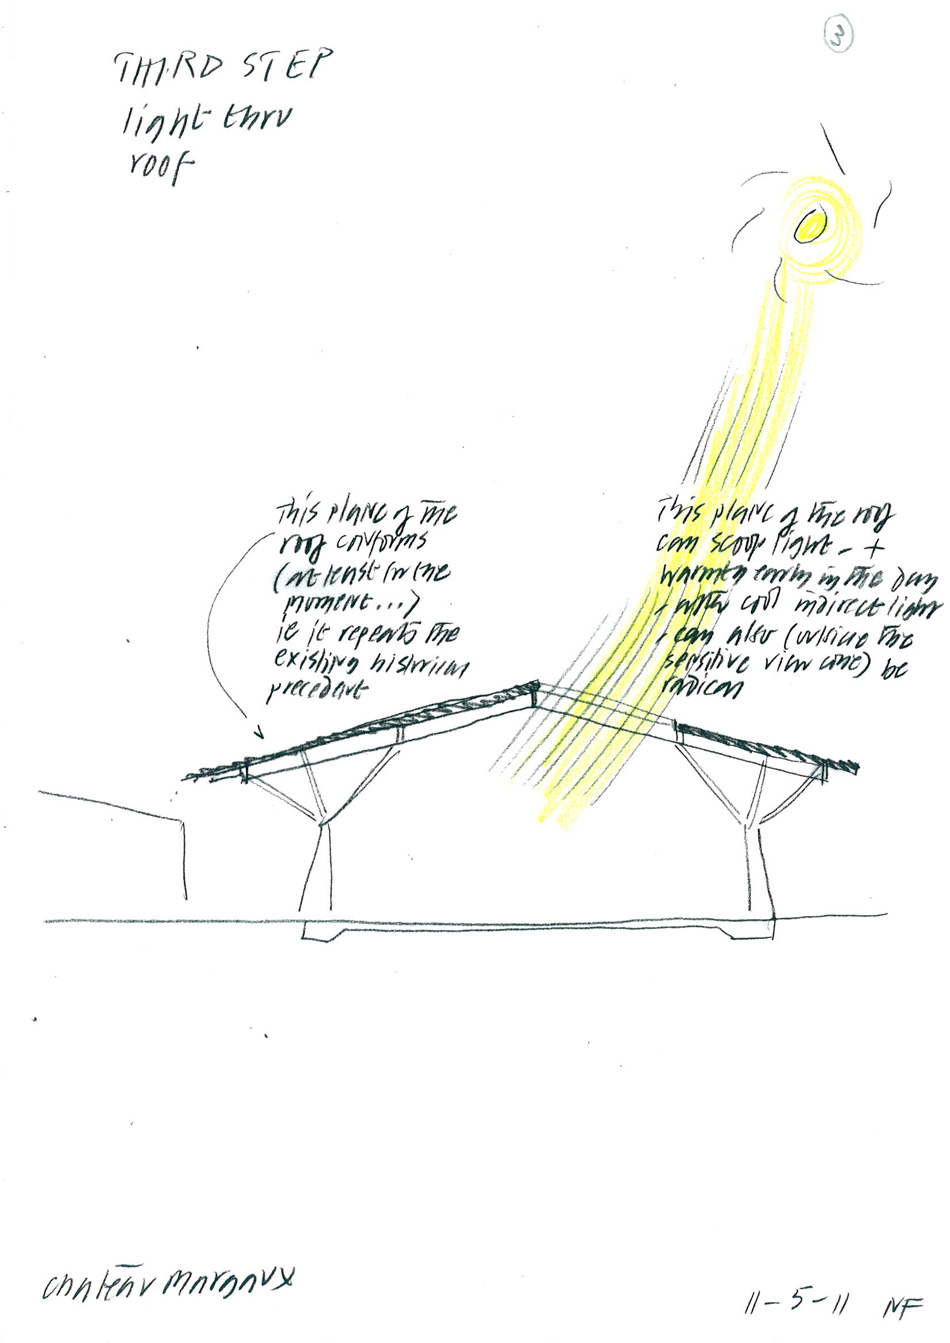 3
THIRD STEP
light thru
roof
This plane of the
roof conforms
(at least for the
moment...)
ie it repeats the
existing historical
precedent
This plane of the roof
can scoop light - +
warmth early in the day
with cool indirect light
can also (outside the
sensitive view cone) be
radical
Chateau Margaux
11-5-11 NF